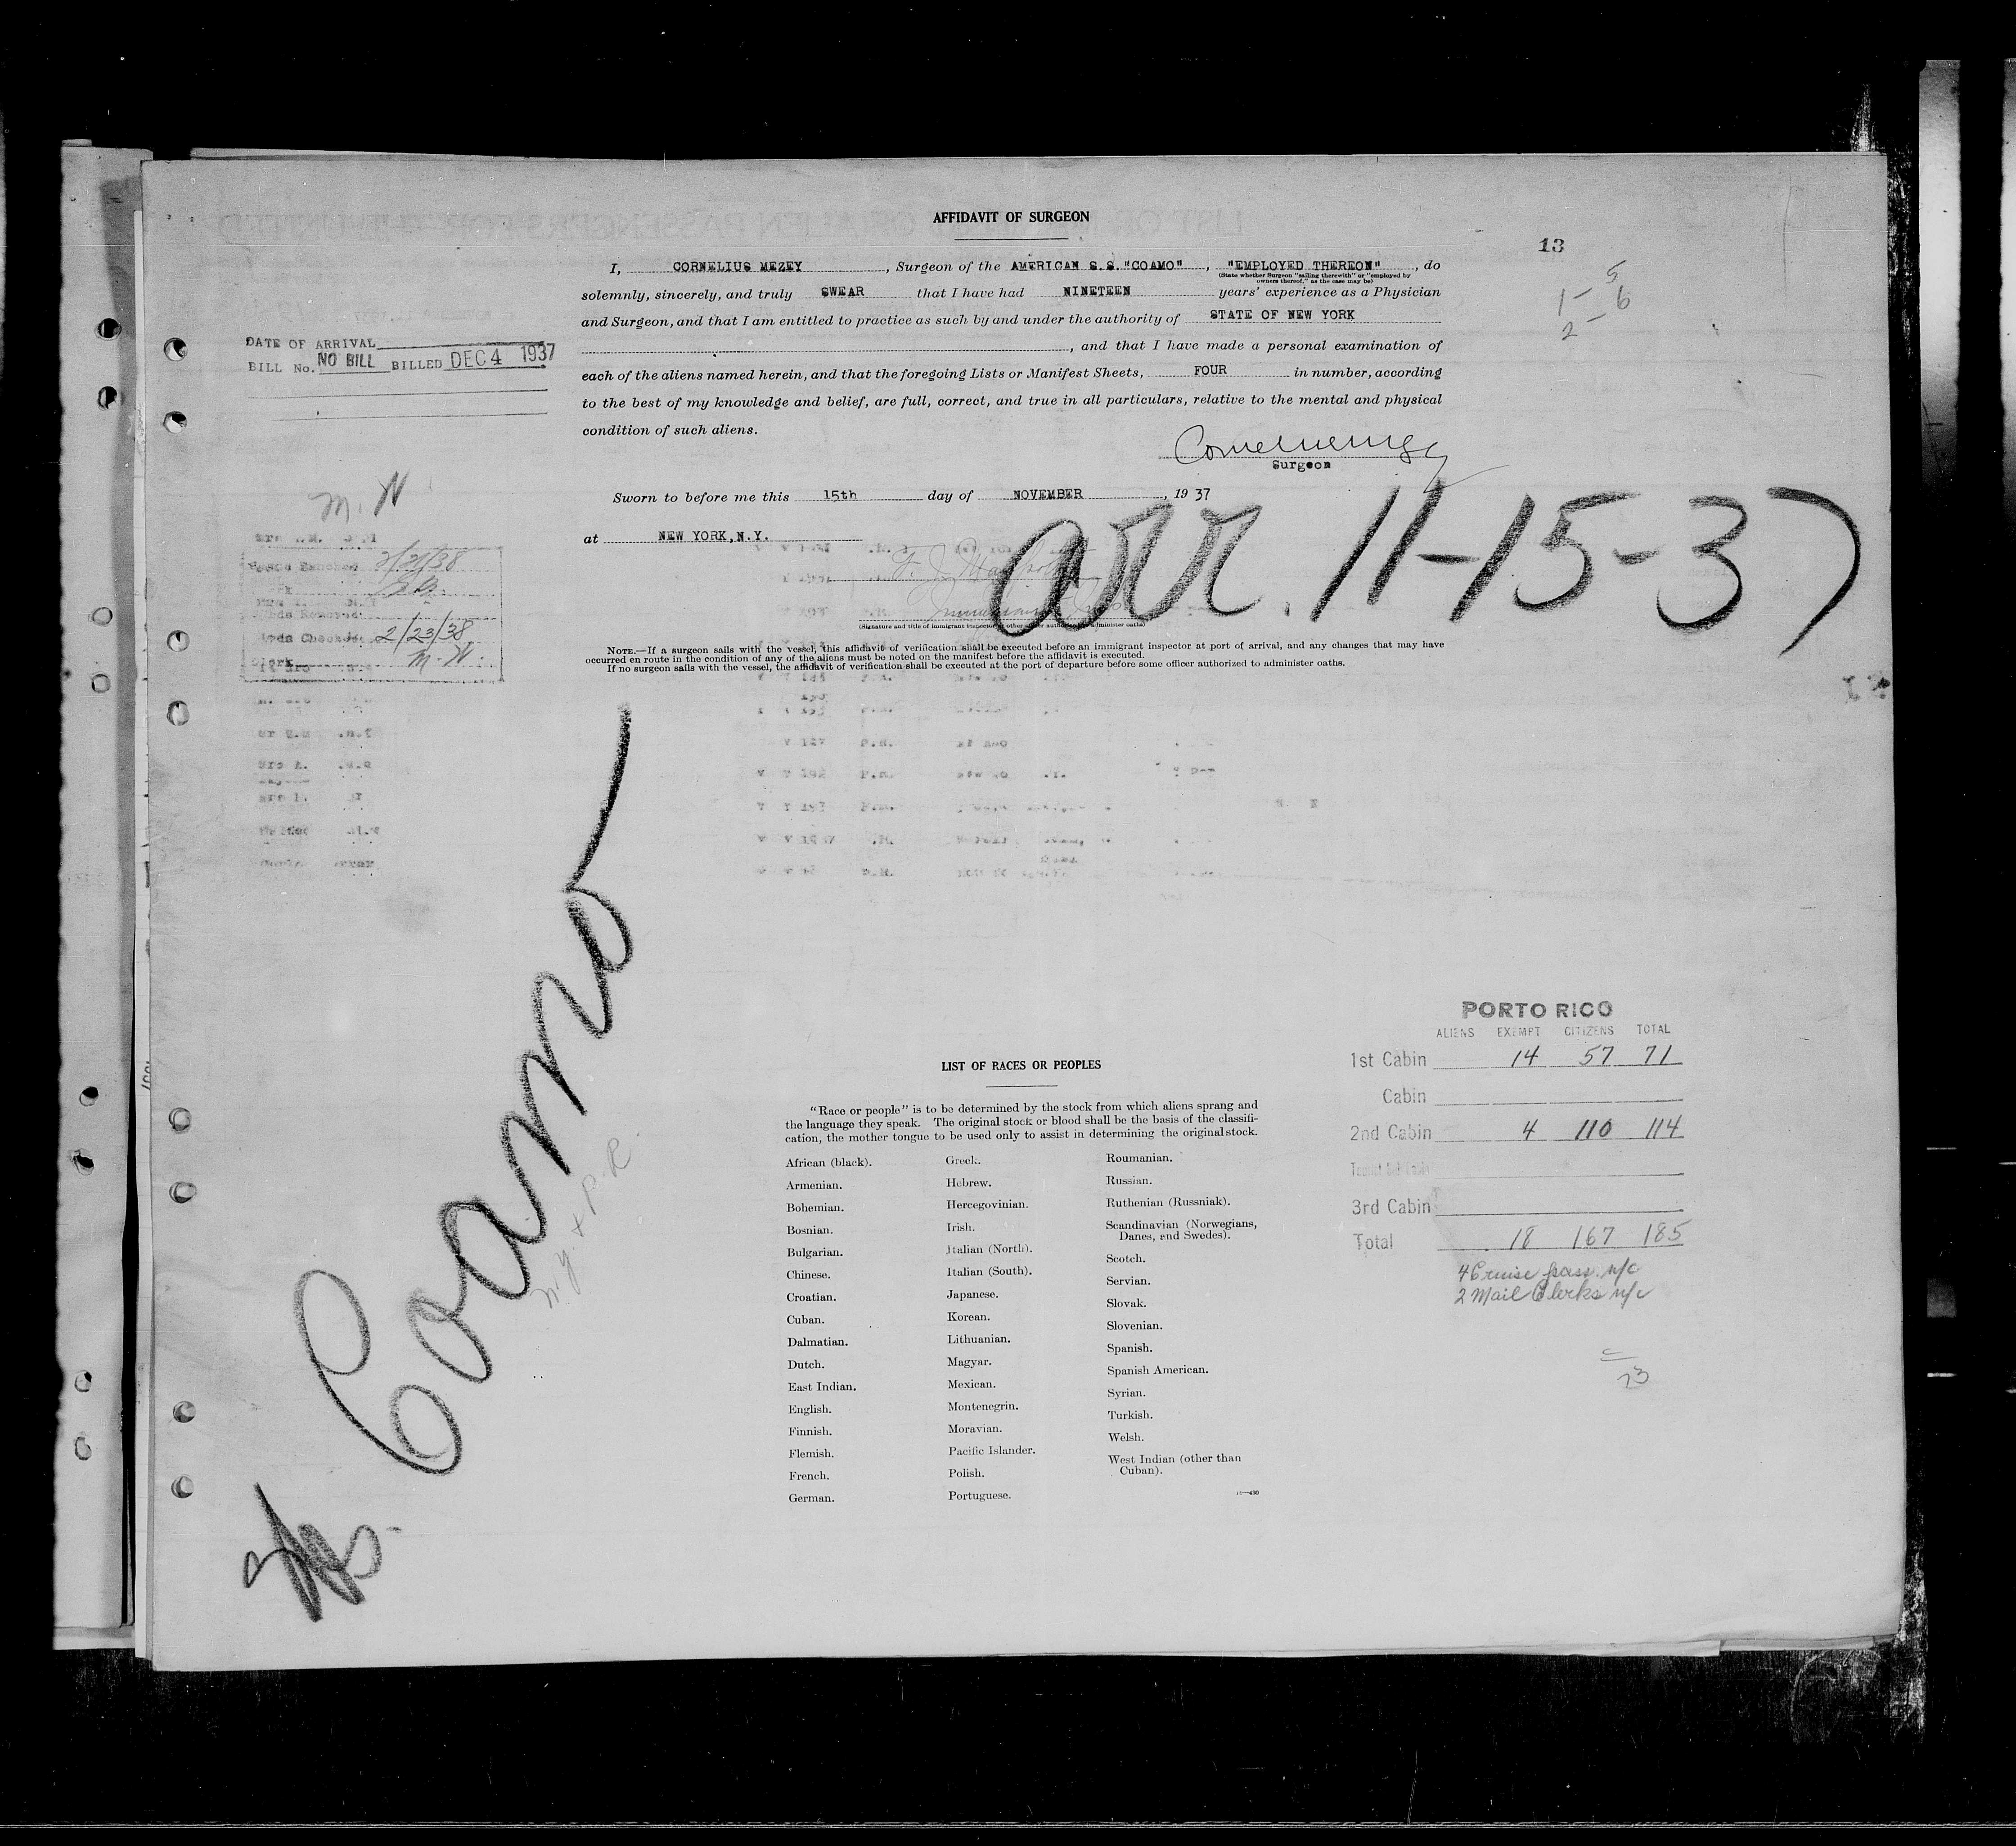 AFFIDAVIT OF SURGEON
13
I, CORNELIUS MEZEY, Surgeon of the AMERICAN S.S. "COAMO", "EMPLOYED THEREON", do
(State whether Surgeon "sailing therewith" or "employed by owners thereof," as the case may be)
solemnly, sincerely, and truly SWEAR that I have had NINETEEN years' experience as a Physician
and Surgeon, and that I am entitled to practice as such by and under the authority of STATE OF NEW YORK
, and that I have made a personal examination of
each of the aliens named herein, and that the foregoing Lists or Manifest Sheets, FOUR in number, according
to the best of my knowledge and belief, are full, correct, and true in all particulars, relative to the mental and physical
condition of such aliens.
Surgeon
Sworn to before me this 15th day of NOVEMBER, 1937
at NEW YORK, N.Y.
(Signature and title of immigrant inspector or other officer authorized to administer oaths)
NOTE.—If a surgeon sails with the vessel, this affidavit of verification shall be executed before an immigrant inspector at port of arrival, and any changes that may have
occurred en route in the condition of any of the aliens must be noted on the manifest before the affidavit is executed.
If no surgeon sails with the vessel, the affidavit of verification shall be executed at the port of departure before some officer authorized to administer oaths.
5
1 - 6
2 -
DATE OF ARRIVAL
BILL No. NO BILL BILLED DEC 4 1937
M. W
2/21/38
2/23/38
Clerk M. W.
arr. 11-15-37
Coamo
N.Y. & P.R.
LIST OF RACES OR PEOPLES
"Race or people" is to be determined by the stock from which aliens sprang and
the language they speak. The original stock or blood shall be the basis of the classifi-
cation, the mother tongue to be used only to assist in determining the original stock.
African (black).
Armenian.
Bohemian.
Bosnian.
Bulgarian.
Chinese.
Croatian.
Cuban.
Dalmatian.
Dutch.
East Indian.
English.
Finnish.
Flemish.
French.
German.
Greek.
Hebrew.
Hercegovinian.
Irish.
Italian (North).
Italian (South).
Japanese.
Korean.
Lithuanian.
Magyar.
Mexican.
Montenegrin.
Moravian.
Pacific Islander.
Polish.
Portuguese.
Roumanian.
Russian.
Ruthenian (Russniak).
Scandinavian (Norwegians,
Danes, and Swedes).
Scotch.
Servian.
Slovak.
Slovenian.
Spanish.
Spanish American.
Syrian.
Turkish.
Welsh.
West Indian (other than
Cuban).
PORTO RICO
ALIENS EXEMPT CITIZENS TOTAL
1st Cabin 14 57 71
Cabin
2nd Cabin 4 110 114
3rd Cabin
Total 18 167 185
4 Cruise pass. n/c
2 Mail Clerks n/c
23